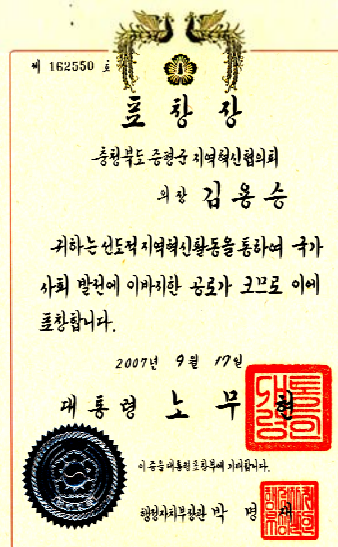 제 162550 호
표창장
충청북도 증평군 지역혁신협의회
의장 김용승
귀하는 선도적 지역혁신활동을 통하여 국가
사회 발전에 이바지한 공로가 크므로 이에
표창합니다.
2007년 9월 17일
대통령 노무현
이 증을 대통령표창부에 기재합니다.
행정자치부장관 박명재